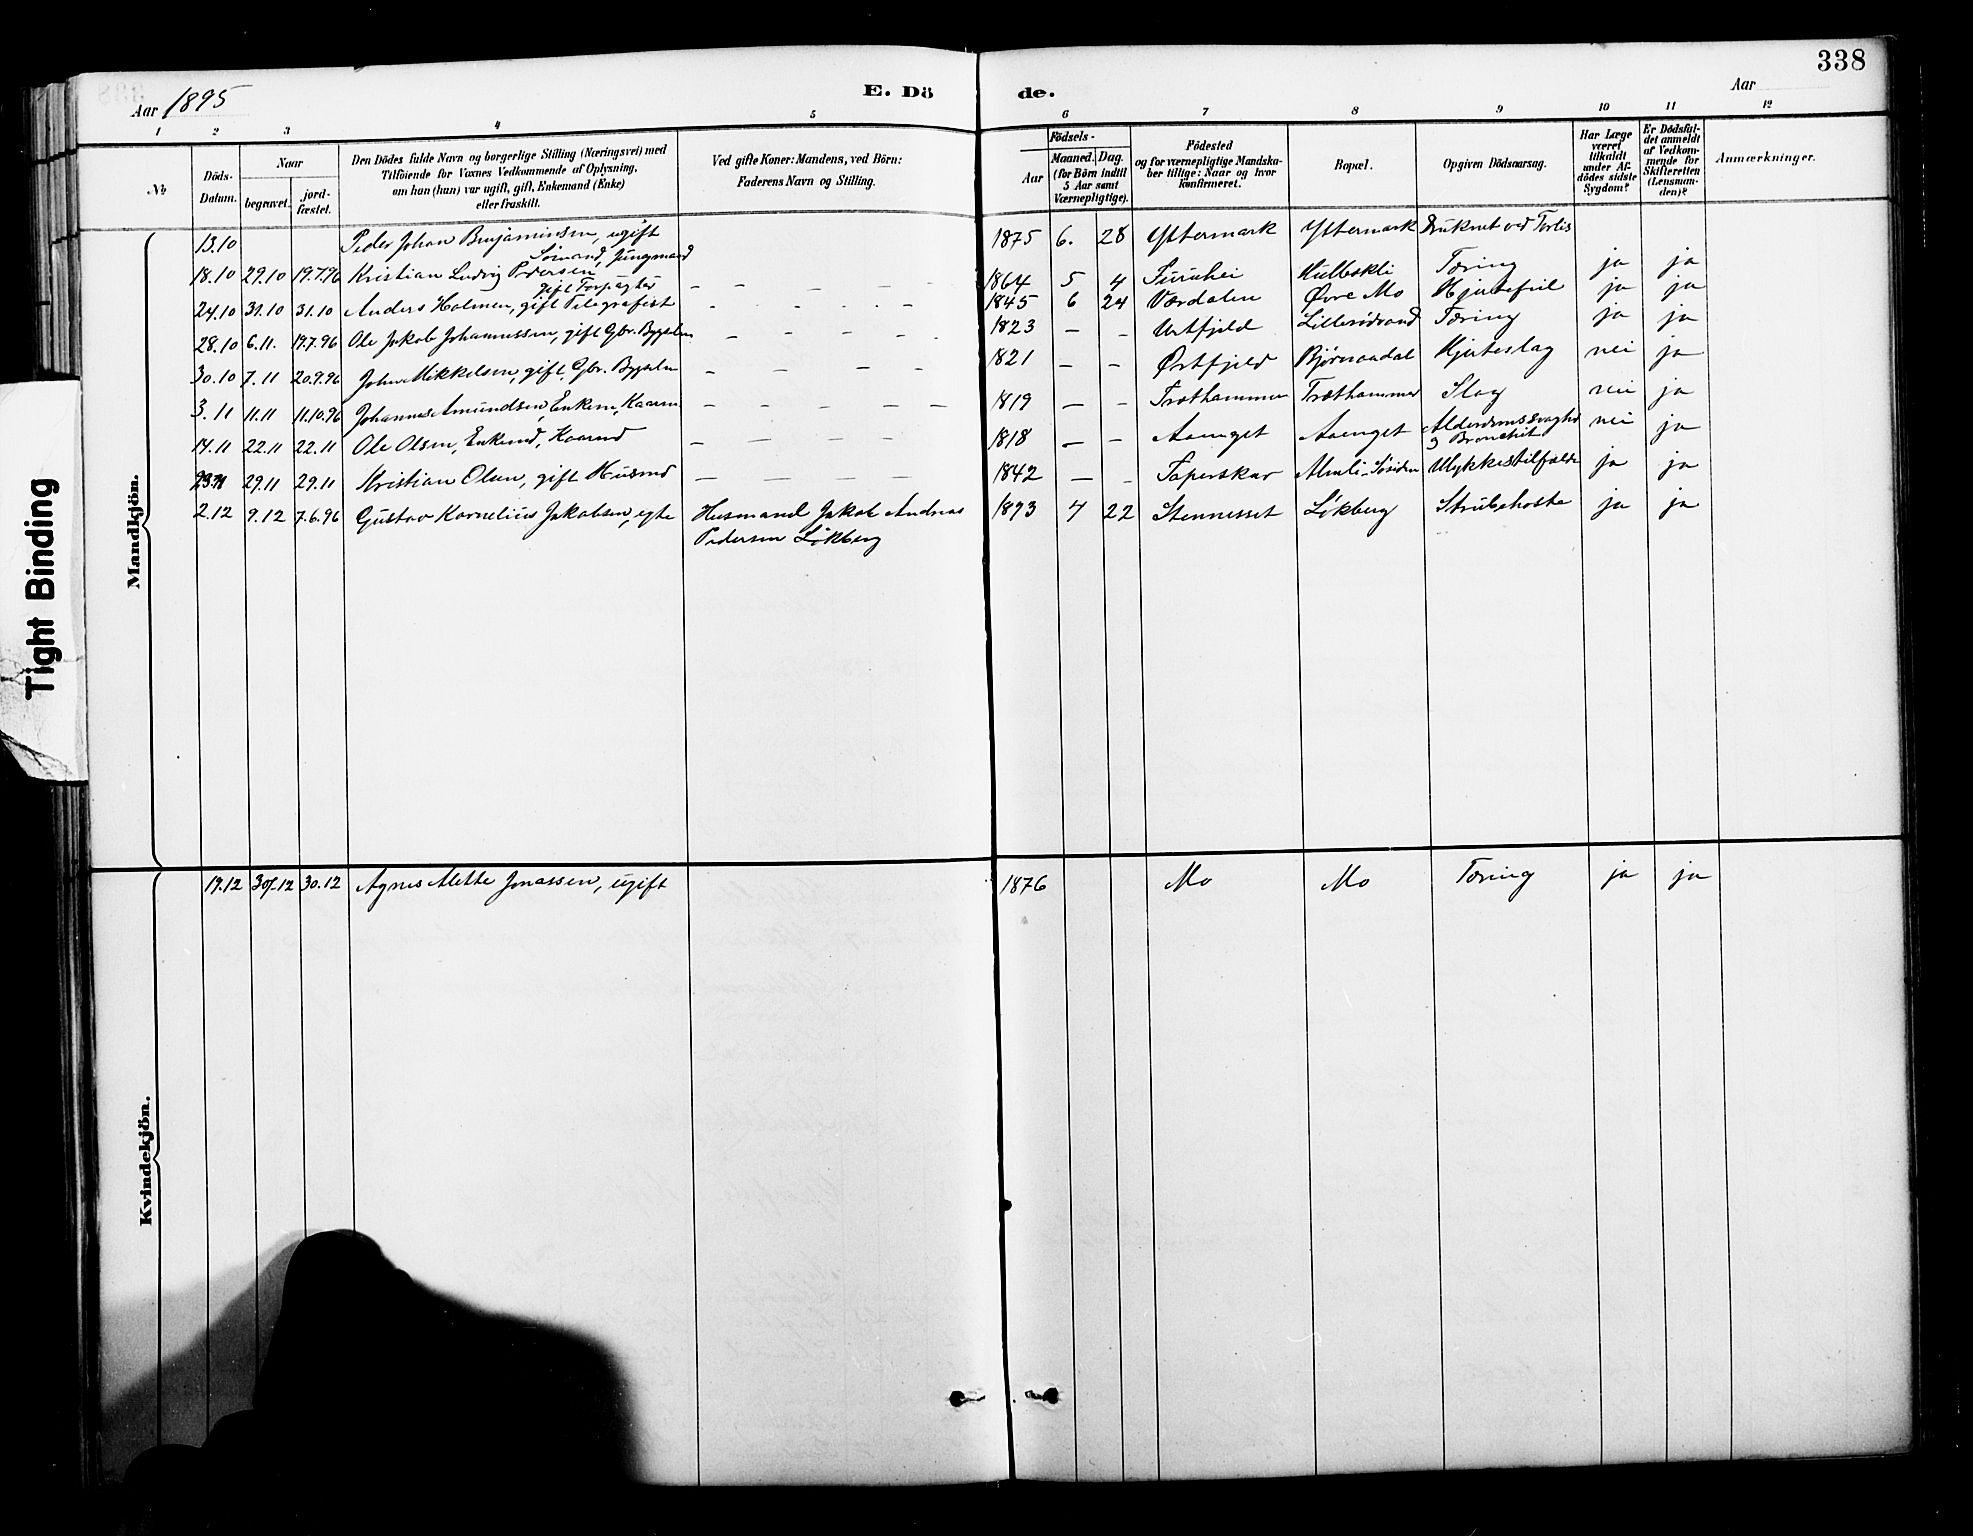 338
Aar 1895
E. Dö
de.
Aar
1 2 3 4 5 6 7 8 9 10 11 12
№
Döds-Datum.
Naar
begravet.
jord-fæstet.
Den Dödes fulde Navn og borgerlige Stilling (Næringsvei) med
Tilföiende for Voxnes Vedkommende af Oplysning,
om han (hun) var ugift, gift, Enkemand (Enke)
eller fraskilt.
Ved gifte Koner: Mandens, ved Börn:
Faderens Navn og Stilling.
Födsels-
Aar
Maaned. Dag.
(for Börn indtil
5 Aar samt
Værnepligtige).
Födested
og for værnepligtige Mandska-
ber tillige: Naar og hvor
konfirmeret.
Bopæl.
Opgiven Dödsaarsag.
Har Læge
været
tilkaldt
under Af-
dödes sidste
Sygdom?
Er Dödsfal-
det anmeldt
af Vedkom-
mende for
Skifteretten
(Lensman-
den)?
Anmærkninger.
Mandkjön.
13.10 Peder Johan Benjaminsen, ugift 1875 6. 28 Yttermark Yttermark Druknet ved
Sømand, Jungmand
18.10 29.10 19.7.96 Kristian Ludvig Pedersen, 1864 5 4 Furuhei Tæring ja ja
gift Forpagter
24.10 31.10 31.10 Anders Holmen, gift Telegrafist 1845 6 24 Værdalen Øvre Mo Hjertefeil ja ja
28.10 6.11. 19.7.96 Ole Jakob Johannessen, gift Gbr. Bygselm 1823 — - Urtfjeld Tæring ja ja
30.10 7.11 20.9.96 John Mikkelsen, gift, Gbr. Bygselm 1821 — - Ørtfjeld Bjørnaadal Hjerteslag nei ja
3.11 11.11 11.10.96 Johannes Amundsen, Enkem, Kaarm 1819 — - Træthammer Træthammer Slag nei ja
14.11 22.11 22.11 Ole Olsen, Enkemd, Kaarmd 1818 — - Aaenget Aaenget Alderdomssvaghed nei ja
og Bronchit
23.11 29.11 29.11 Kristian Olsen, gift Husmd 1842 — - Taperskar Almli Ulykkestilfælde ja ja
2.12 9.12 7.6.96 Gustav Kornelius Jakobsen, egte Husmand Jakob Andreas 1893 7 22 Stennesset Løkberg Strubehoste ja ja
Pedersen Løkberg
Kvindekjön.
17.12 30.12 30.12 Agnes Alette Jonassen, ugift 1876 Mo Mo Tæring ja ja
Tight Binding